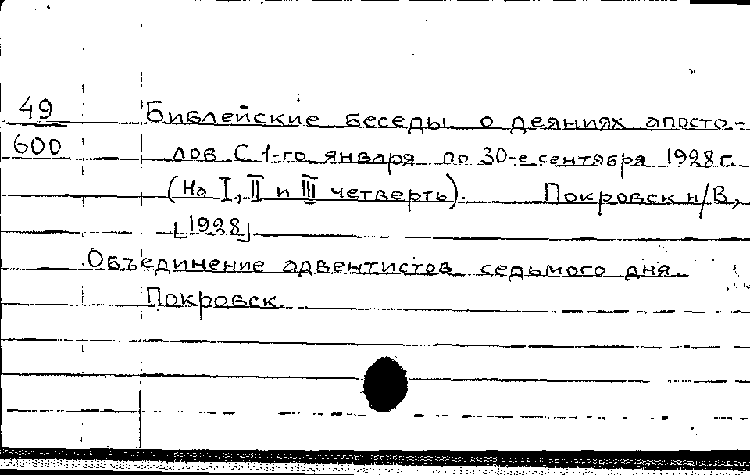 49
600
Библейские беседы о деяниях апосто-
лов С 1-го января по 30-е сентября 1928 г.
(на I, II и III четверть). Покровск н/В,
[1928]
Объединение адвентистов седьмого дня.
Покровск.